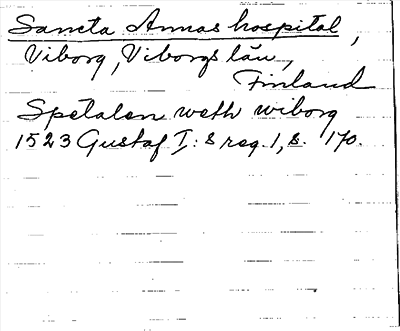 Sancta Annas hospital,
Viborg, Viborgs län,
Finland
Spetalen weth wiborg
1523 Gustaf I:s reg. 1, s. 170.